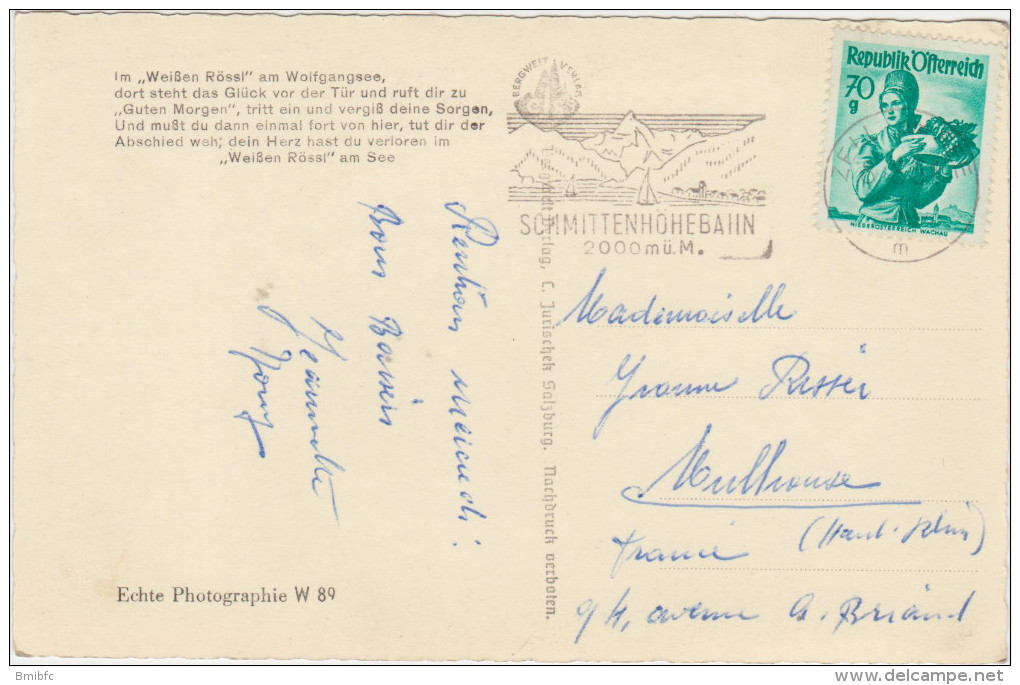 Im „Weißen Rössl" am Wolfgangsee,
dort steht das Glück vor der Tür und ruft dir zu
„Guten Morgen", tritt ein und vergiß deine Sorgen,
Und mußt du dann einmal fort von hier, tut dir der
Abschied weh; dein Herz hast du verloren im
„Weißen Rössl" am See
BERGWELT VERLAG
SCHMITTENHÖHEBAHN
2000mü.M.
Republik Österreich
70
g
NIEDERÖSTERREICH WACHAU
ZEL
m
Verlag, C. Jurischek Salzburg. Nachdruck verboten.
Bons Baisers
Jeannette
Mademoiselle
Yvonne Risser
Mulhouse
France (Haut-Rhin)
94, avenue A. Briand
Echte Photographie W 89
Bmibfc
delcampe.net